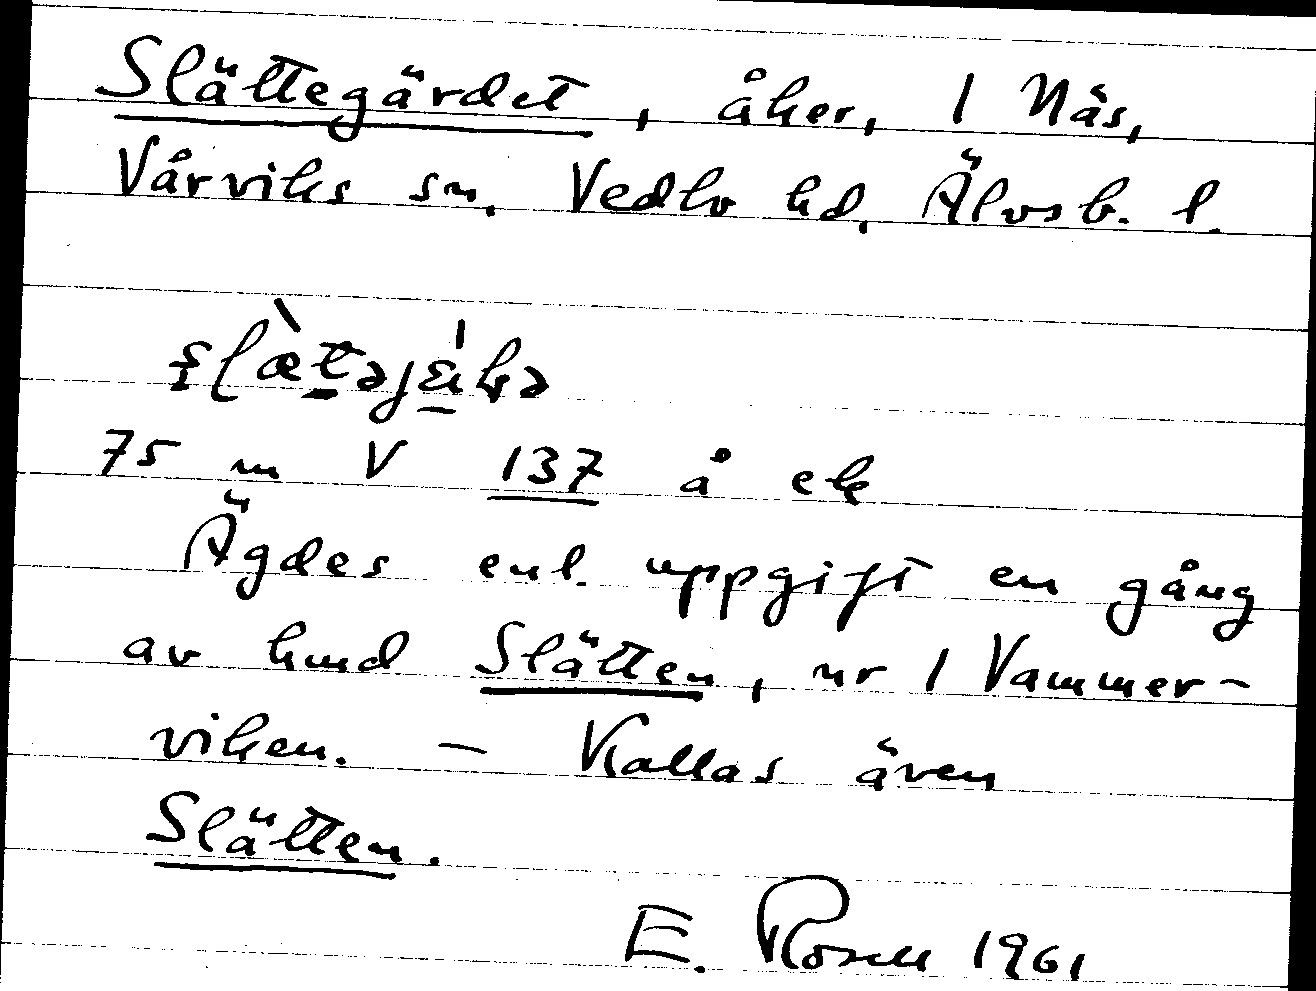 Slättegärdet, åker, 1 Näs,
Vårviks sn. Vedbo hd, Älvsb. l.
75 m V 137 å ek
Ägdes enl. uppgift en gång
av hmd Slätten, nr 1 Vammer-
viken. – Kallas även
Slätten.
E. Rosell 1961